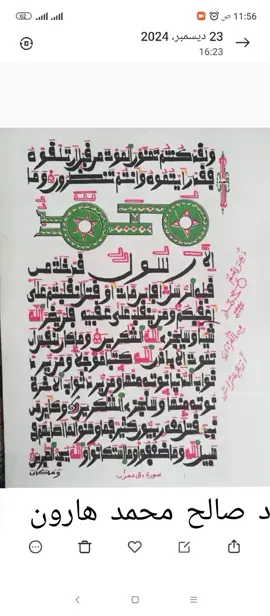 11:56 ص
62
23 ديسمبر، 2024
16:23
ولقد كنتم تمنون الموت من قبل ان تلقوه
فقد رايتموه وانتم تنظرون وما
محمد
الا رسول قد خلت من
قبله الرسل افاين مات او قتل انقلبتم على
اعقبكم ومن ينقلب على عقبيه فلن يضر الله
شيا وسيجزي الله الشكرين وما كان لنفس ان
تموت الا باذن الله كتبا موجلا ومن يرد
ثواب الدنيا نوته منها ومن يرد ثواب الاخرة
نوته منها وسنجزي الشكرين وكاين من
نبي قتل معه ربيون كثير فما وهنوا لما اصابهم في
سبيل الله وما ضعفوا وما استكانوا والله يحب الصبرين
وما كان
سورة ال عمران
د صالح محمد هارون